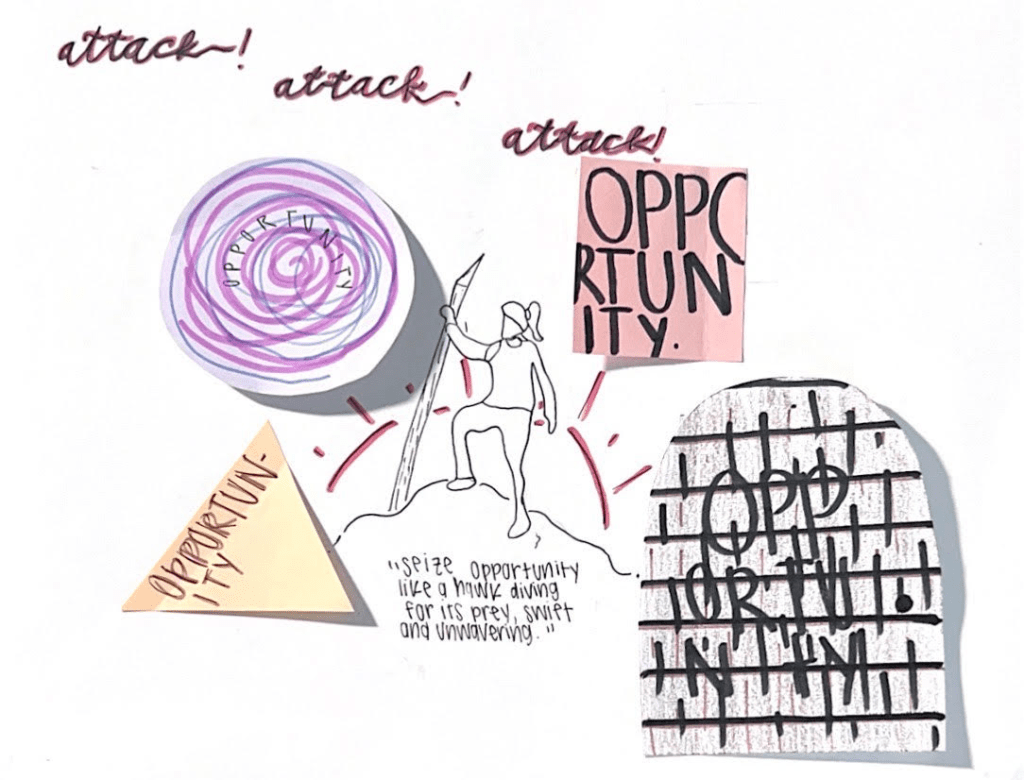 attack!
attack!
attack!
OPPORTUNITY
OPPO
RTUN
ITY.
OPPORTUN-
ITY
"seize opportunity
like a hawk diving
for its prey, swift
and unwavering."
OPP
ORTU
NITY